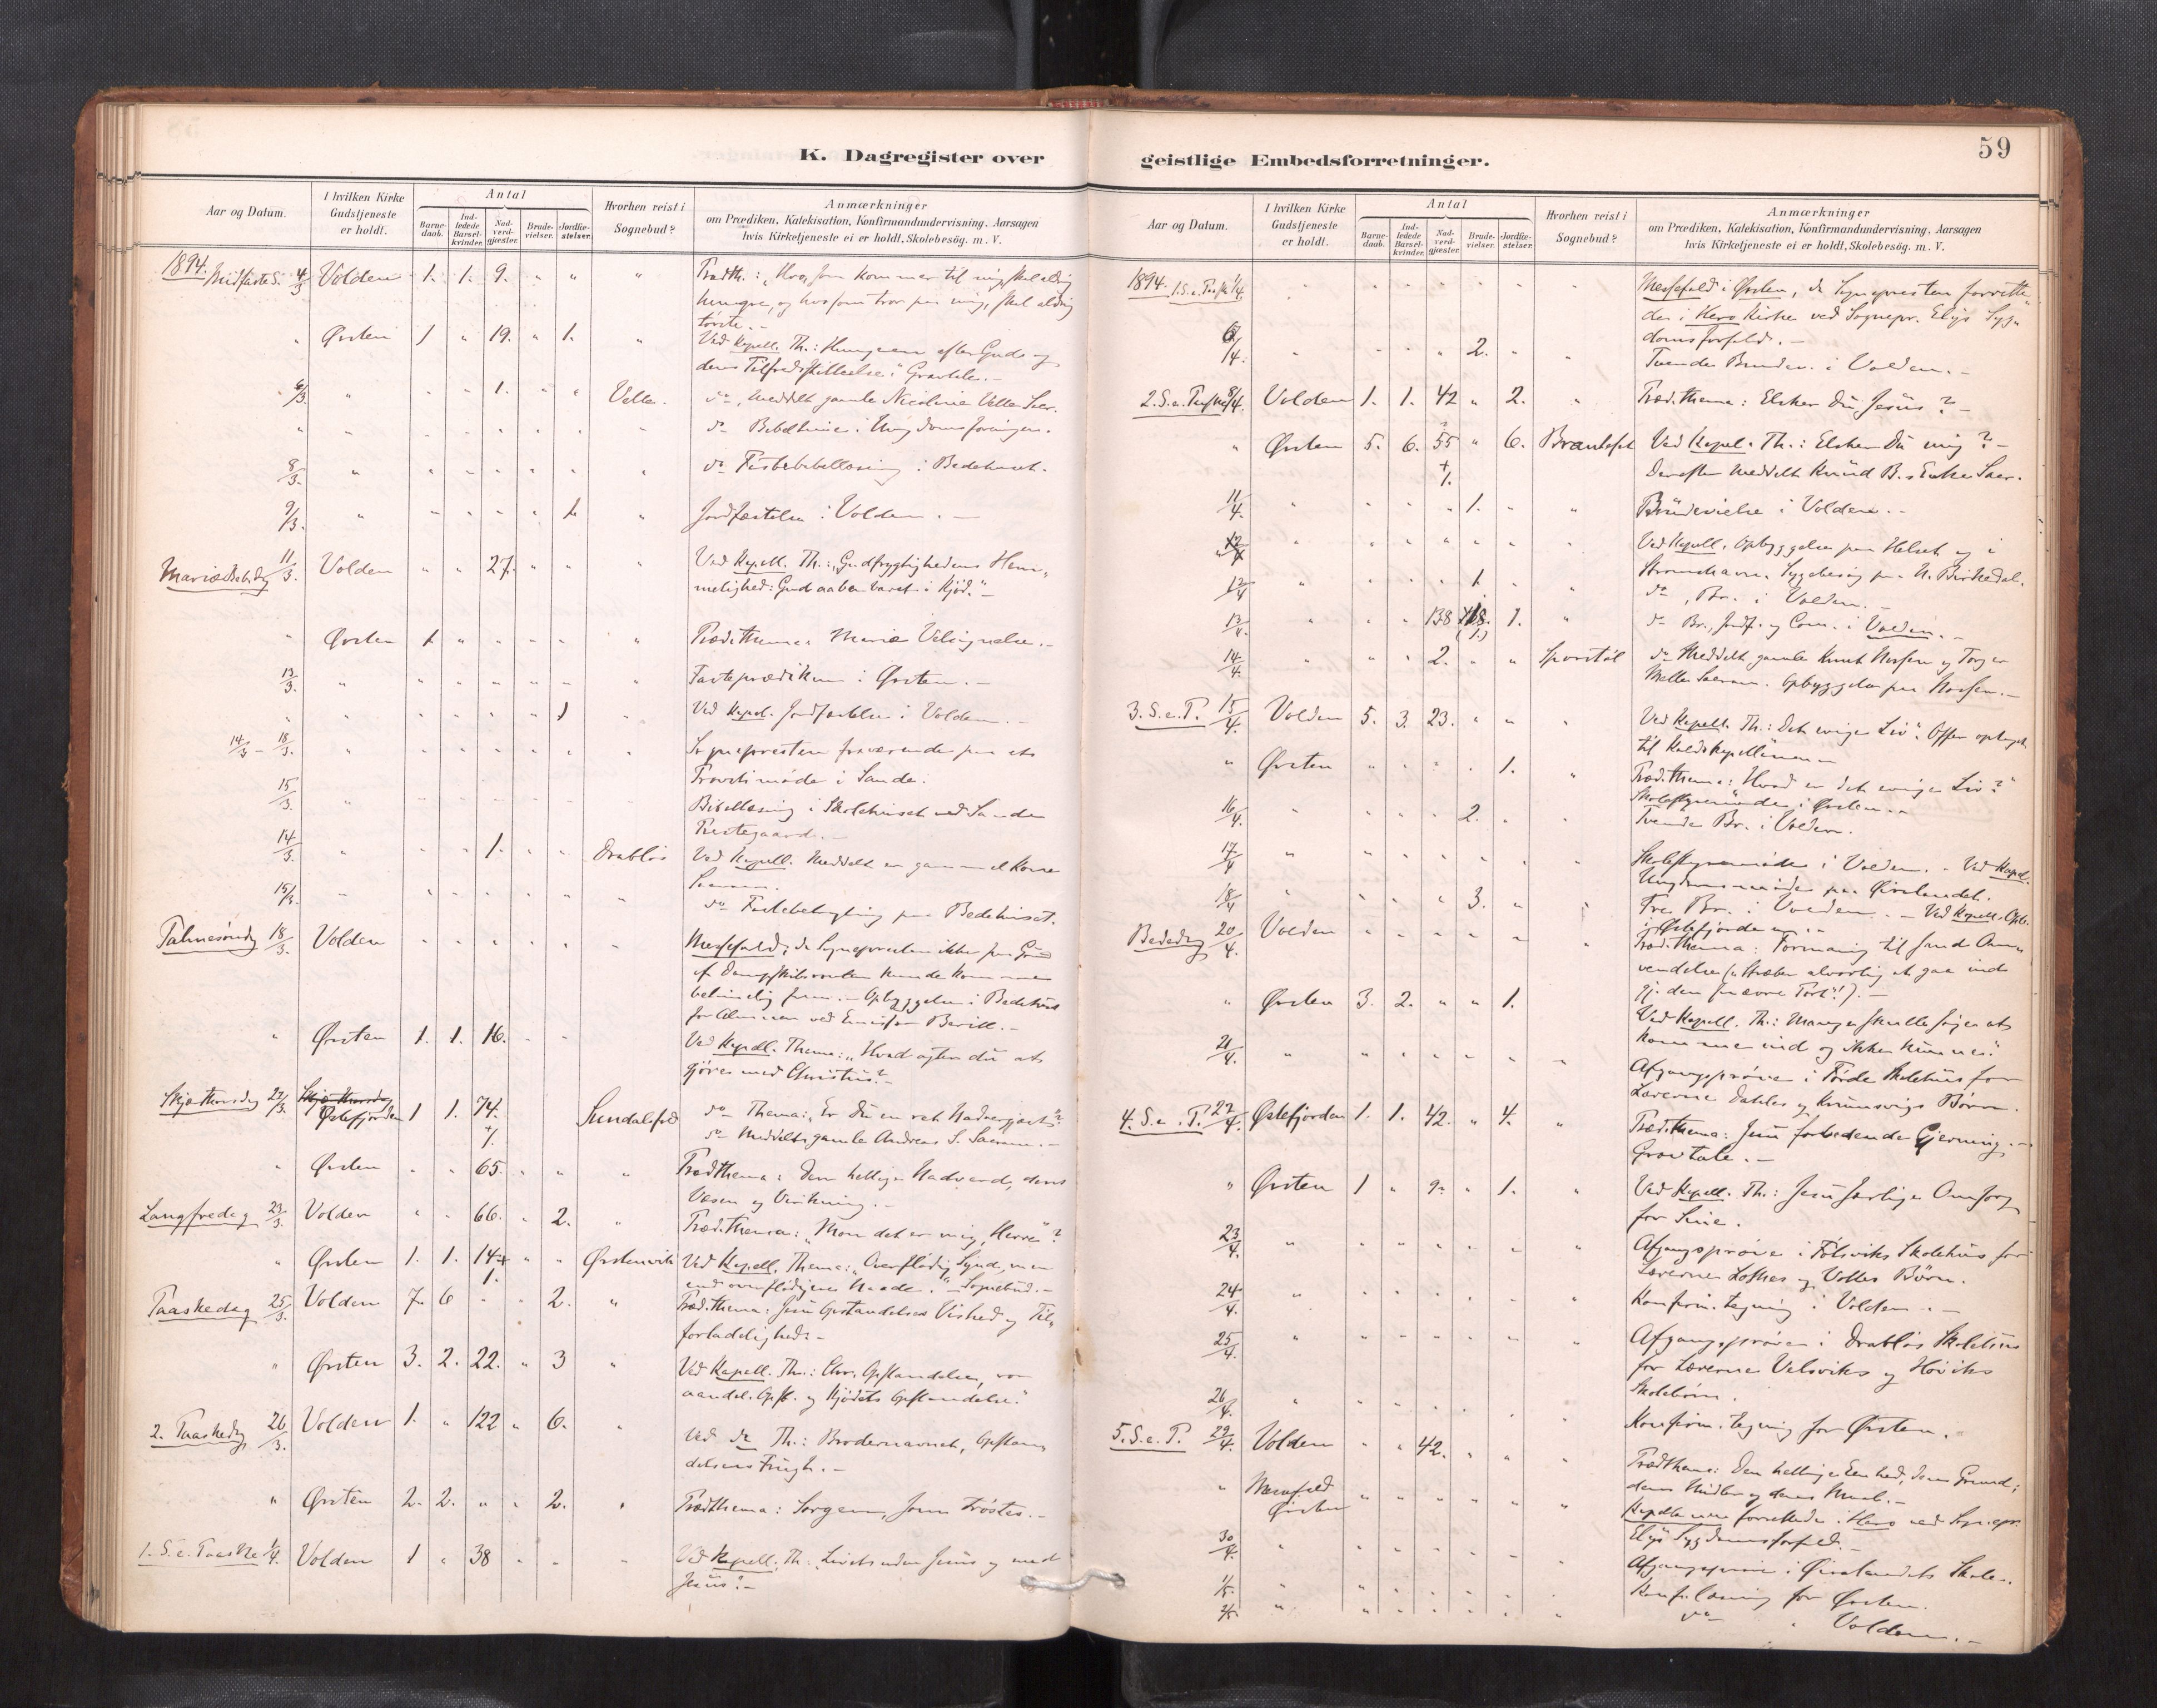 59
K. Dagregister over
geistlige Embedsforretninger.
Aar og Datum.
I hvilken Kirke Gudstjeneste er holdt.
Antal
Barne-daab.
Ind-ledede Barsel-kvinder.
Nad-verd-gjæster.
Brude-vielser.
Jordfæ-stelser.
Hvorhen reist i Sognebud?
Anmærkninger
om Prædiken, Katekisation, Konfirmandundervisning, Aarsagen
hvis Kirketjeneste ei er holdt, Skolebesøg. m. V.
1894. Midfaste S. 4/3 Volden 1. 1. 9. " " " Prædth.: "Hvo, som kommer til mig, skal aldrig
hungre, og hvo som tror paa mig, skal aldrig
tørste. -
" Ørsten 1 " 19. " 1. " Ved Kapell. Th.: Hungeren efter Gud og
dens Tilfredsstillelse." Gravtale. -
6/3 " " " 1. " " Velle. do, Meddelt gamle Nicoline Velle Sacr.
" do Bibeltime i Ungdomsforeningen.
8/3. " do Fastebibellæsning i Bedehuset.
9/3. " " " " " 1. " Jordfæstelse i Volden. -
Mariæ Beb.dag 11/3. Volden " " 27. " " " Ved Kapell. Th.: "Gudfrygtighedens Hem-
melighed: Gud aabenbaret i Kjød." -
" Ørsten 1 " " " " " Præd.thema: Mariæ Velsignelse. -
13/3. " Fasteprædiken i Ørsten. -
" " " " " " 1 " Ved Kapel. Jordfæstelse i Volden. -
14/3 - 18/3. " Sognepresten fraværende paa et
Provstimøde i Sande.
15/3. " Bibellæsning i Skolehuset ved Sande
Prestegaard. -
14/3. " " " 1. " " Drabløs Ved Kapell. Meddelt en gammel Kone
Sacram.
15/3. " do Fastebetragtning paa Bedehuset.
Palmesøndag 18/3. Volden " " " " " " Messefald, da Sognepresten ikke paa Grund
af Dampskibsrouten kunde komme
betimelig frem. - Opbyggelse i Bedehus
for Almuen ved
" Ørsten 1. 1. 16. " " Ved Kapell. Thema: "Hvad agter du at
gjøre med Christus?" -
Skjærthorsdag 22/3. Østefjorden 1 1. 74. + 1. Sundalsfod do Thema: "Er du en ret Nadvergjæst?"
do Meddelt gamle Andreas S. Sacram. -
" Ørsten " " 65. " " " Prædthema: Den hellige Nadverd, dens
Væsen og Virkning. -
Langfredag 23/3. Volden " " 66. " 2. " Præd.thema: "Mon det er mig, Herre"?
" Ørsten 1. 1. 14 + 1. " " Ørstenvik Ved Kapell. Thema: "Overflødig Synd, men
end overflødigere Naade." - Sognebud. -
Paaskedag 25/3. Volden 7. 6 " " 2. " Præd.thema: Jesu Opstandelses Vished og Til-
forladelighed. -
" Ørsten 3. 2. 22. " 3 " Ved Kapell. Th.: Chr. Opstandelse, vor
aandel. Opst. og Kjødets Opstandelse."
2. Paaskedag 26/3. Volden 1. " 122 " 6. " Ved do Th.: Brodernavnet, Opstan-
delsens Frugt. -
" Ørsten 2. 2. " " 2. " Prædthema: Sorgen, som trøstes. -
1. S. e. Paaske 1/4. Volden 1 " 38 " " " Ved Kapell. Th. Livet uden Jesus og med
Jesus. -
1894. 1. S. e. Paaske 1/4. " Messefald i Ørsten, da Sognepresten forrette-
de i Herø Kirke ved Sognepr. Elys Syg-
domsforfald. -
6/4. " " " " 2. " " Tvende Brudev. i Volden. -
2. S. e. Paaske 8/4. Volden 1. 1. 42 " 2. " Præd.thema: Elsker du Jesus? -
" Ørsten 5. 6. 55 + 1. " 6. Ved Kapel. Th.: Elsker du mig? -
Derefter meddelt Knud B.s Enke Sacr.
11/4. " " " " 1. " " Brudevielse i Volden. -
12/4 " Ved Kapell. Opbyggelse paa Helset og i
Sygebesøg paa N. Birkedal.
12/4 " " " " 1 " " do, Br. i Volden. -
13/4. " " " 138 1. " do Br., Jordf. og Com. i Volden. -
14/4. " " " 2. " " do Meddelt gamle
Sacram. Opbyggelse paa -
3. S. e. P. 15/4. Volden 5. 3. 23. " " " Ved Kapell. Th.: Det evige Liv". Offer optaget
til Kaldskapellanen -
" Ørsten " " " " 1. " Præd.thema: Hvad er det evige Liv?"
Skolestyremøde i Ørsten. -
16/4. " " " " 2. " " Tvende Br. i Volden.
17/4 " Skolestyremøde i Volden. - Ved Kapel.
Ungdomsmøde paa
18/4 " " " " 3. " " Tre Br. i Volden. - Ved Kapell. Opb.
i Østefjorden. -
Bededag 20/4. Volden " " " " " " Præd.thema: Formaning til sand Om-
vendelse (Stræber alvorlig at gaa ind
gj. den snævre Port"!). -
" Ørsten 3. 2. " " 1. Ved Kapell. Th.: Mange skulle søge at
komme ind og ikke kunne."
21/4. " Afgangsprøve i Førde Skolehus for
Lærerne Dahles og Børn.
4. S. e. P. 22/4. Østefjorden 1. 1. 42. " 4. " Præd.thema: Jesu forbedende Gjerning. -
Gravtale. -
" Ørsten 1 " 9. " 1. " Ved Kapell. Th.: Jesu kjærlige Omsorg
for Sine.
23/4. " Afgangsprøve i Følsviks Skolehus for
Lærerne og Voldes Børn.
24/4. " Konfirm. tegning i Volden. -
25/4. " Afgangsprøve i Drabløs Skolehus
for Lærerne Velsviks og Høviks
Skolebørn.
26/4. " Konfirm. tegning for Ørsten.
5. S. e. P. 29/4. Volden " " 42. " " " Prædthema: Den hellige Eenhed, dens Grund,
dens Midler og dens Maal. -
" Messefald
Ørsten " Kapellanen forrettede i Herø ved Sognepr.
Elys Sygdomsforfald. -
30/4. " Afgangsprøve i Skole.
1/5. " Konf. læsning for Ørsten.
2/5. " do " Volden. -